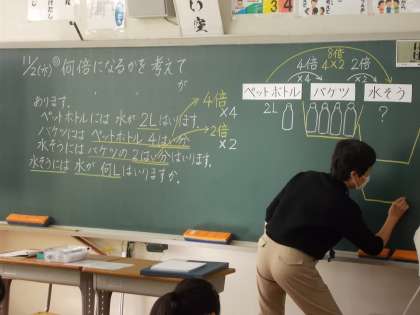 11/2(水)
何倍になるかを考えて
が
あります。
ペットボトルには 水が 2Lはいります。
バケツには ペットボトル 4はい分
水そうには バケツの 2はい分はいります。
水そうには 水が 何Lはいりますか。
4倍
×4
2倍
×2
8倍
4×2
4倍
×4
2倍
×2
ペットボトル
バケツ
水そう
2L
?